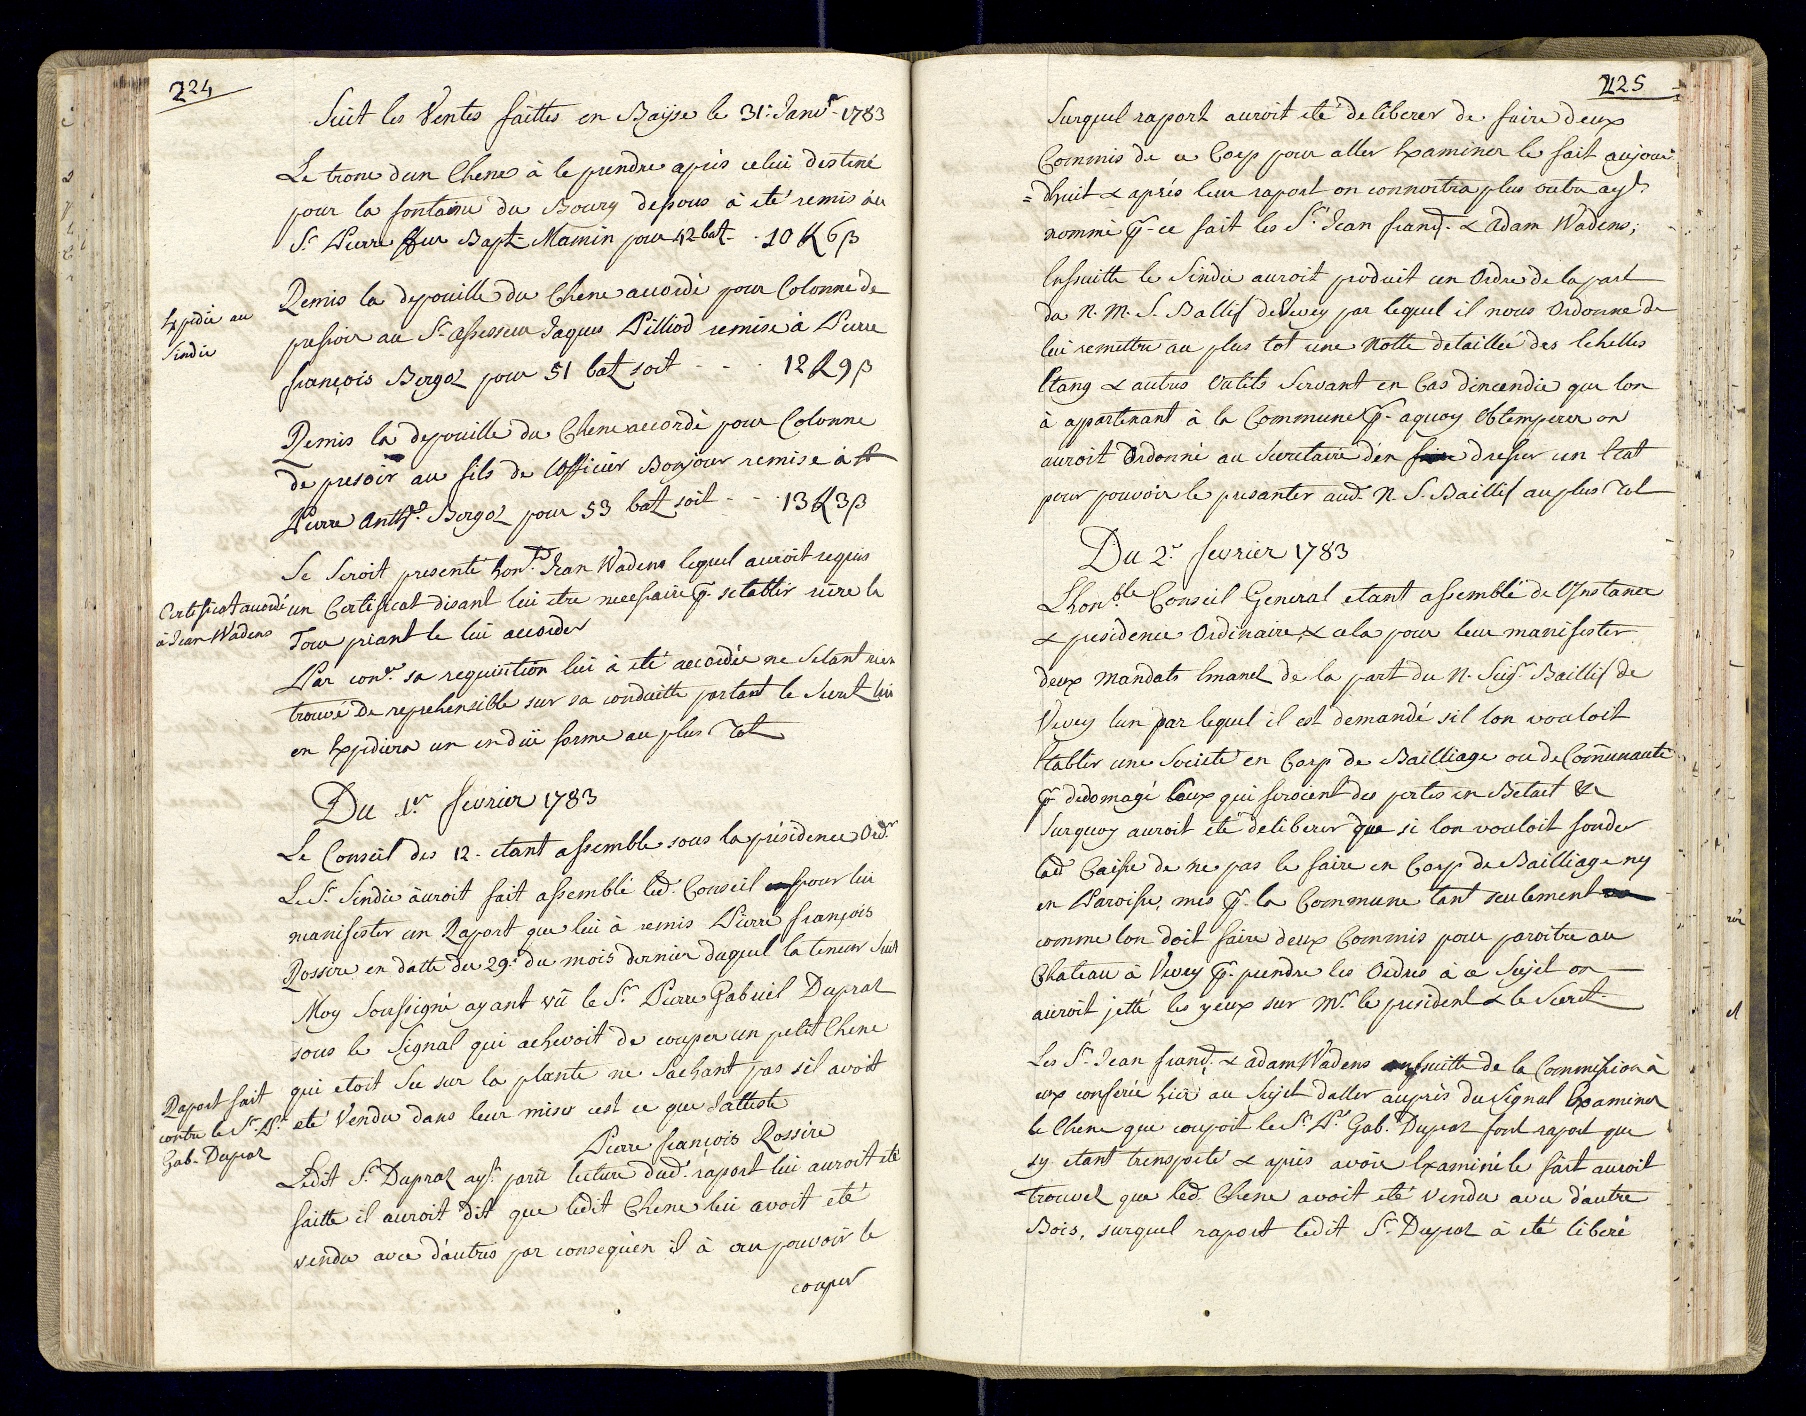 224
Suit les Ventes faittes en Bayse le 31.e Janv.r 1783
Le tronc d'un Chene à le prendre après celui destiné
pour la fontaine du Bourg dessous à été remis au
S.r Pierre Bapt. Mamin pour 42 bat - 10 ß 6 ß
Remis la depouille du Chene accordé pour Colonne de
Expedié au
Sindic
pressoir au S.r assesseur Jaques Pilliod remise à Pierre
françois Bergoz pour 51 batz soit - - - 12 ß 9 ß
Remis la depouille du Chene accordé pour Colonne
de presoir au fils de l'officier Bonjour remise à
Pierre Anth.e Bergoz pour 53 batz soit - - - 13 ß 3 ß
Se Seroit presenté hon.té Jean Wadens lequel auroit requis
Certificat accordé
à Jean Wadens
un Certificat disant lui etre necessaire p.r s'etablir riere la
Tour priant le lui accorder
Par con.r sa requisition lui à été accordée ne S'etant rien
trouvé de reprehensible sur sa conduitte partant le Secret. lui
en Expediera un en düe forme au plus Tot
Du 1.er fevrier 1783
Le Conseil des 12. etant assemblé sous la présidence Ord.re
Le S.r Sindic auroit fait assemblé led. Conseil pour lui
manifester un Raport que lui à remis Pierre françois
Rossire en datte du 29.e du mois dernier duquel la teneur Suit
Moy Soussigné ayant vû le S.r Pierre Gabriel Dupraz
sous le Signal qui achevoit de couper un petit Chene
qui etoit Sec sur la plante ne Sachant pas s'il avoit
Raport fait
contre le S.r P.re
Gab. Dupraz
eté Vendu dans leur mises cest ce que J'atteste
Pierre françois Rossire
Ledit S.r Dupraz ay.t parû lecture dud. raport lui auroit eté
faitte il auroit dit que ledit Chene lui avoit eté
vendu avec d'autres par consequen il à cru pouvoir le
couper
225
Surquel raport auroit eté deliberer de faire deux
Commis de ce Corp pour aller Examiner le fait aujour
= dhuit & après leur raport on connoitra plus outre ay.t
nommé p.r ce fait les S.rs Jean franç. & Adam Wadens;
Ensuitte le Sindic auroit produit un Ordre de la part
du N. M. S. Ballif de Vevey par lequel il nous Ordonne de
lui remettre au plus tot une Notte detaillée des Echelles
Etang & autres Outils Servant en Cas dincendie que lon
à appartenant à la Commune p.r aquoy Obtemperer on
auroit Ordonné au Secretaire d'en dresser un Etat
pour pouvoir le presanter aud. N. S. Baillif au plus Tot
Du 2.e fevrier 1783
L'hon.ble Conseil General etant assemblé de l'Instance
& presidence Ordinaire, & cela pour leur manifester
deux Mandats Emanez de la part du N. Seig.r Baillif de
Vevey lun par lequel il est demandé sil lon vouloit
Etablir une Societé en Corp de Bailliage ou de Communauté
p.r dedomagé Ceux qui feroient des pertes en Betail &c
Surquoy auroit eté deliberer que si lon vouloit fonder
lad. Caisse de ne pas le faire en Corp de Bailliage ny
en Paroisse, mes p.r la Commune tant seulement
comme lon doit faire deux Commis pour paroitre au
Chateau à Vevey p.r prendre les Ordres à ce Sujet on
auroit jetté les yeux sur M.r le president & le Secret.
Les S.rs Jean franç. & adam Wadens ensuitte de la Commission à
eux conferée hier au Sujet daller auprès du Signal Examiner
le Chene que coupoit le S.r P.re Gab. Dupraz font raport que
sy etant transporté & après avoir Examiné le fait auroit
trouvez que led. Chene avoit eté vendu avec d'autre
Bois, surquel raport ledit S.r Dupraz à eté liberé